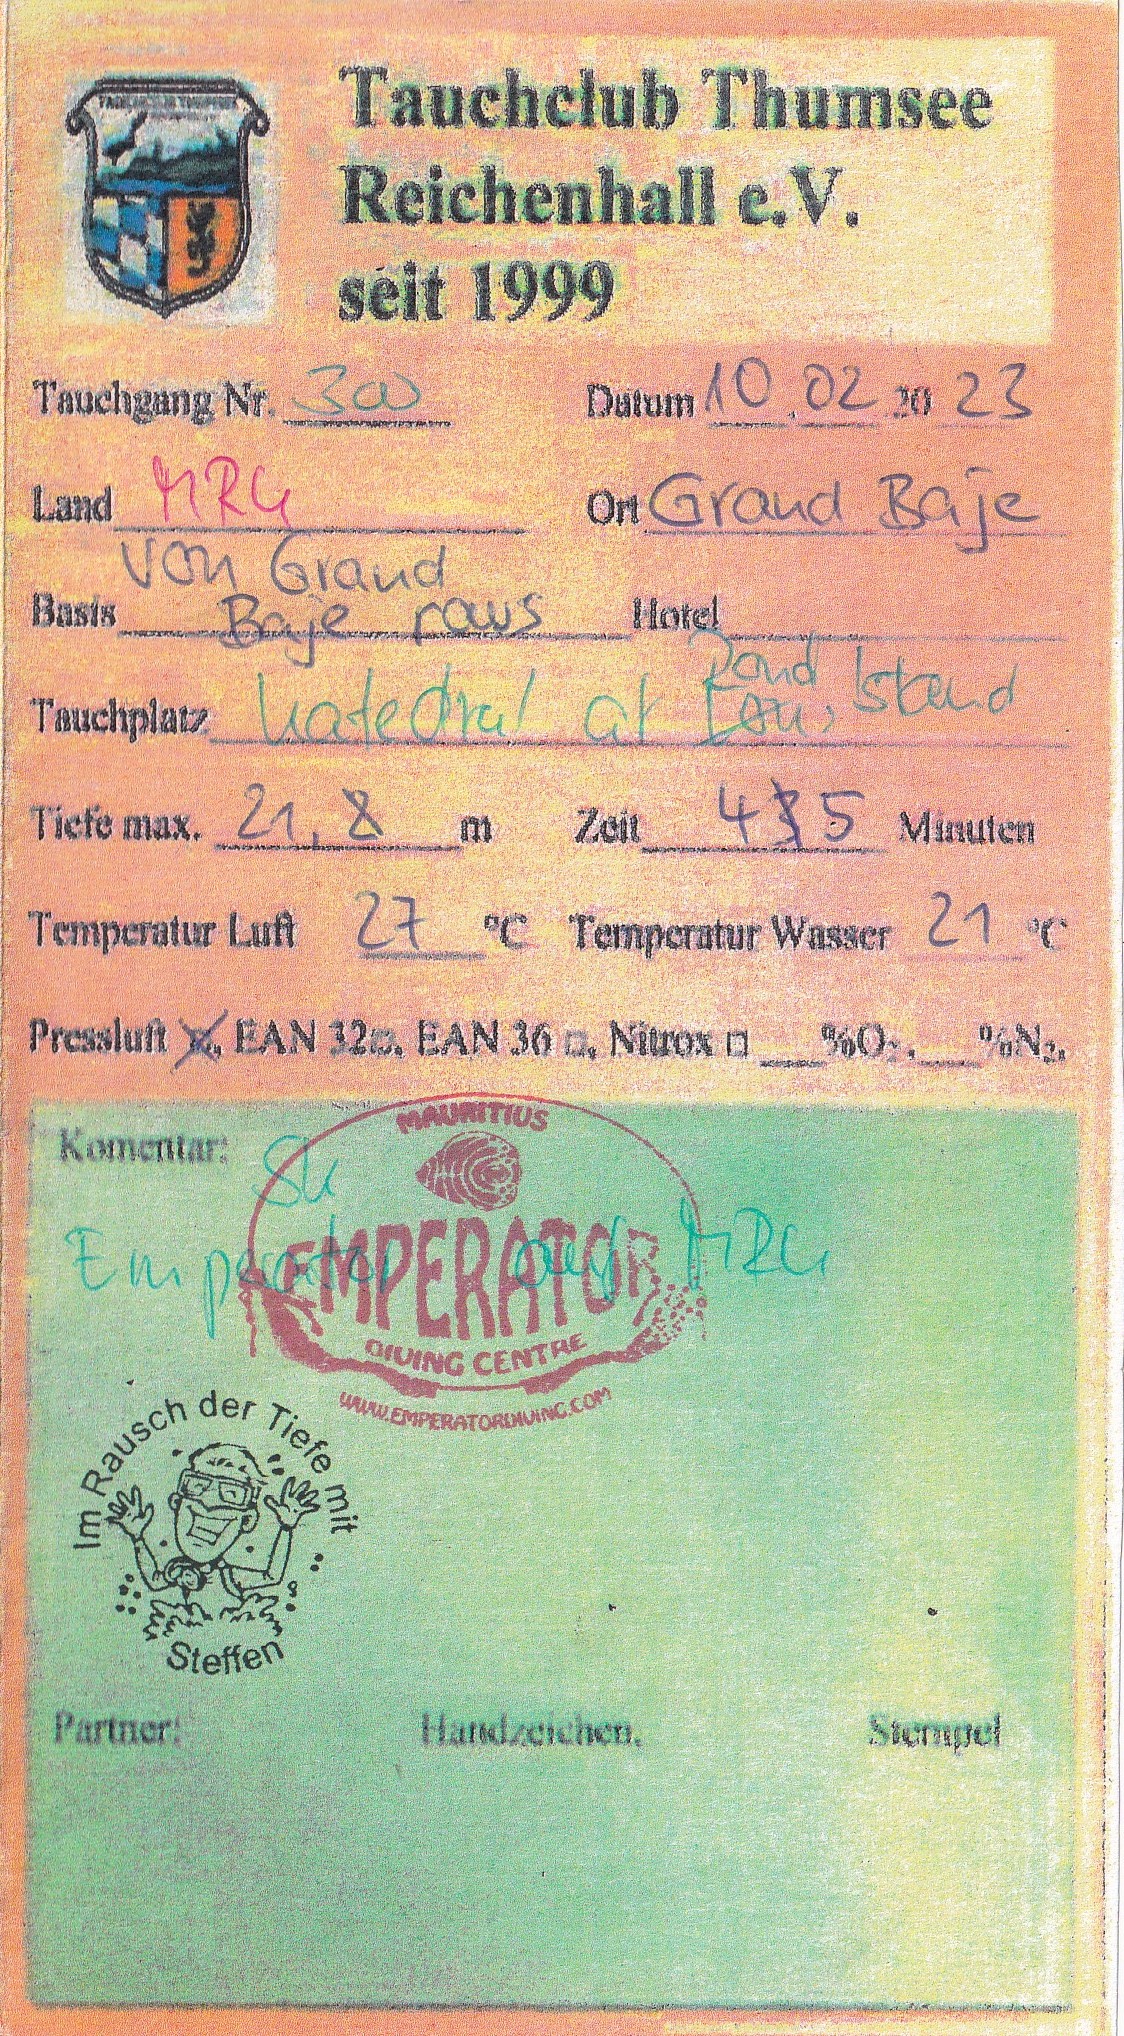 TAUCHCLUB THUMSEE
Tauchclub Thumsee
Reichenhall e.V.
seit 1999
Tauchgang Nr. 300 Datum 10.02.2023
Land MRU Ort Grand Baje
von Grand
Basis Baje raus Hotel
Rond
Tauchplatz Katedral at Island
Tiefe max. 21,8 m Zeit 45 Minuten
Temperatur Luft 27 °C Temperatur Wasser 21 °C
Pressluft ☒, EAN 32□, EAN 36 □, Nitrox □ ___%O₂, ___%N₂,
MAURITIUS
Komentar:
Emperator auf MRU
EMPERATOR
DIVING CENTRE
WWW.EMPERATORDIVING.COM
Im Rausch der Tiefe mit
Steffen
Partner: Handzeichen, Stempel